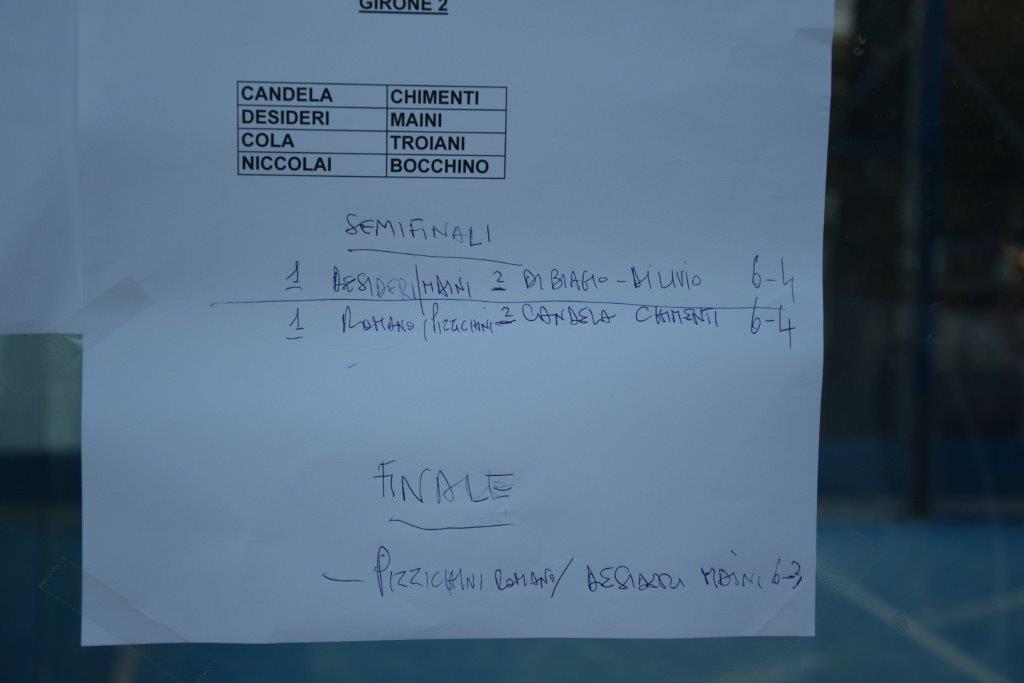 GIRONE 2
CANDELA CHIMENTI
DESIDERI MAINI
COLA TROIANI
NICCOLAI BOCCHINO
SEMIFINALI
1 DESIDERI/MAINI 2 DI BIAGIO - DI LIVIO 6-4
1 ROMANO/PIZZICHINI 2 CANDELA CHIMENTI 6-4
FINALE
- PIZZICHINI ROMANO/ DESIDERI MAINI 6-3